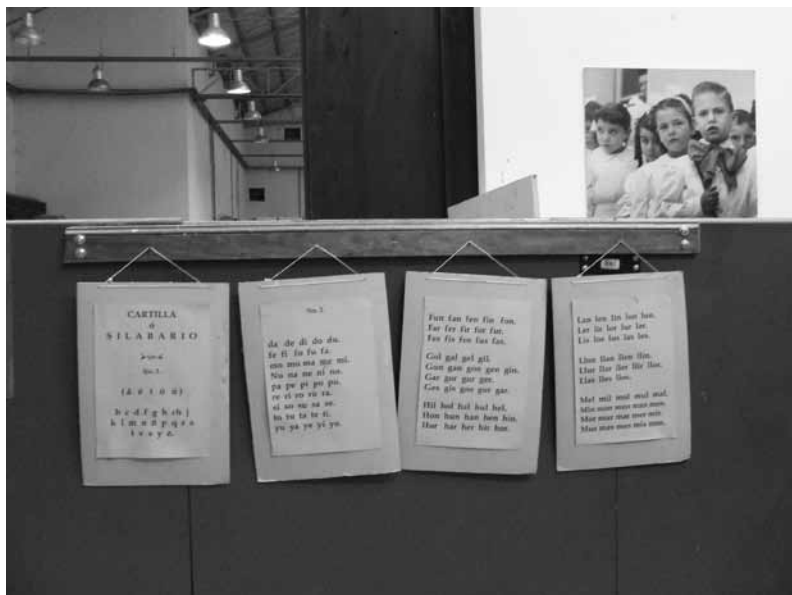 CARTILLA
ó
SILABARIO
No. 1.
(á é í ó ú)
b c d f g h ch j
k l m n ñ p q r s
t v x y z.
No. 2.
da de di do du.
fe fi fo fu fa.
mo mu ma me mi.
Nu na ne ni no.
pa pe pi po pu.
re ri ro ru ra.
si so su sa se.
to tu ta te ti.
yu ya ye yi yo.
Fun fan fen fin fon.
Far fer fir for fur.
Fes fis fos fus fas.
Gol gul gel gil.
Gun gan gon gen gin.
Gar gor gur ger.
Ges gis gos gus gas.
Hil hol hul hal hel.
Hon hun han hen hin.
Hur har her hir hor.
Lan len lin lon lun.
Ler lir lor lur lar.
Lis los lus las les.
Llon llan llen llin.
Llur llar ller llir llor.
Llas lles llos.
Mel mil mol mul mal.
Min mon mun man men.
Mor mur mar mer mir.
Mus mas mes mis mos.